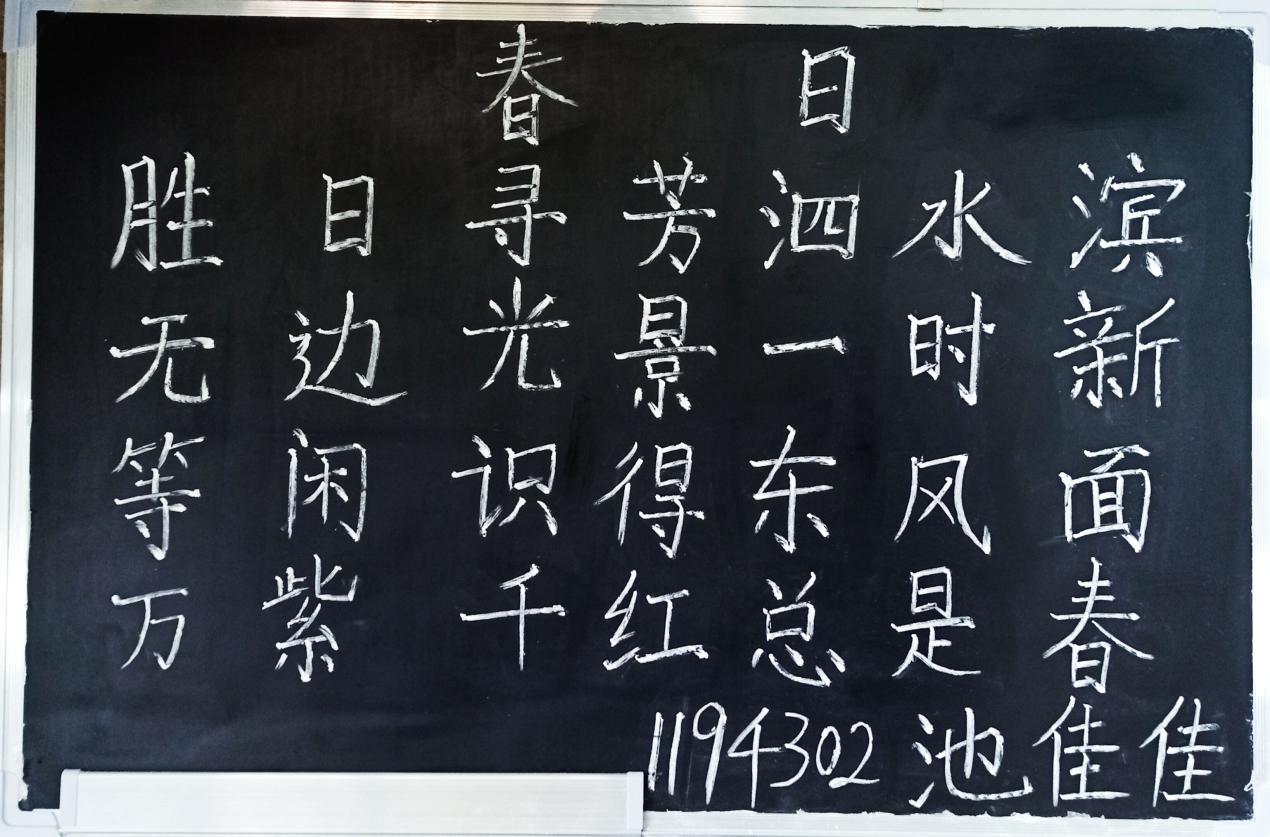 春日
胜日寻芳泗水滨
无边光景一时新
等闲识得东风面
万紫千红总是春
1194302 池佳佳